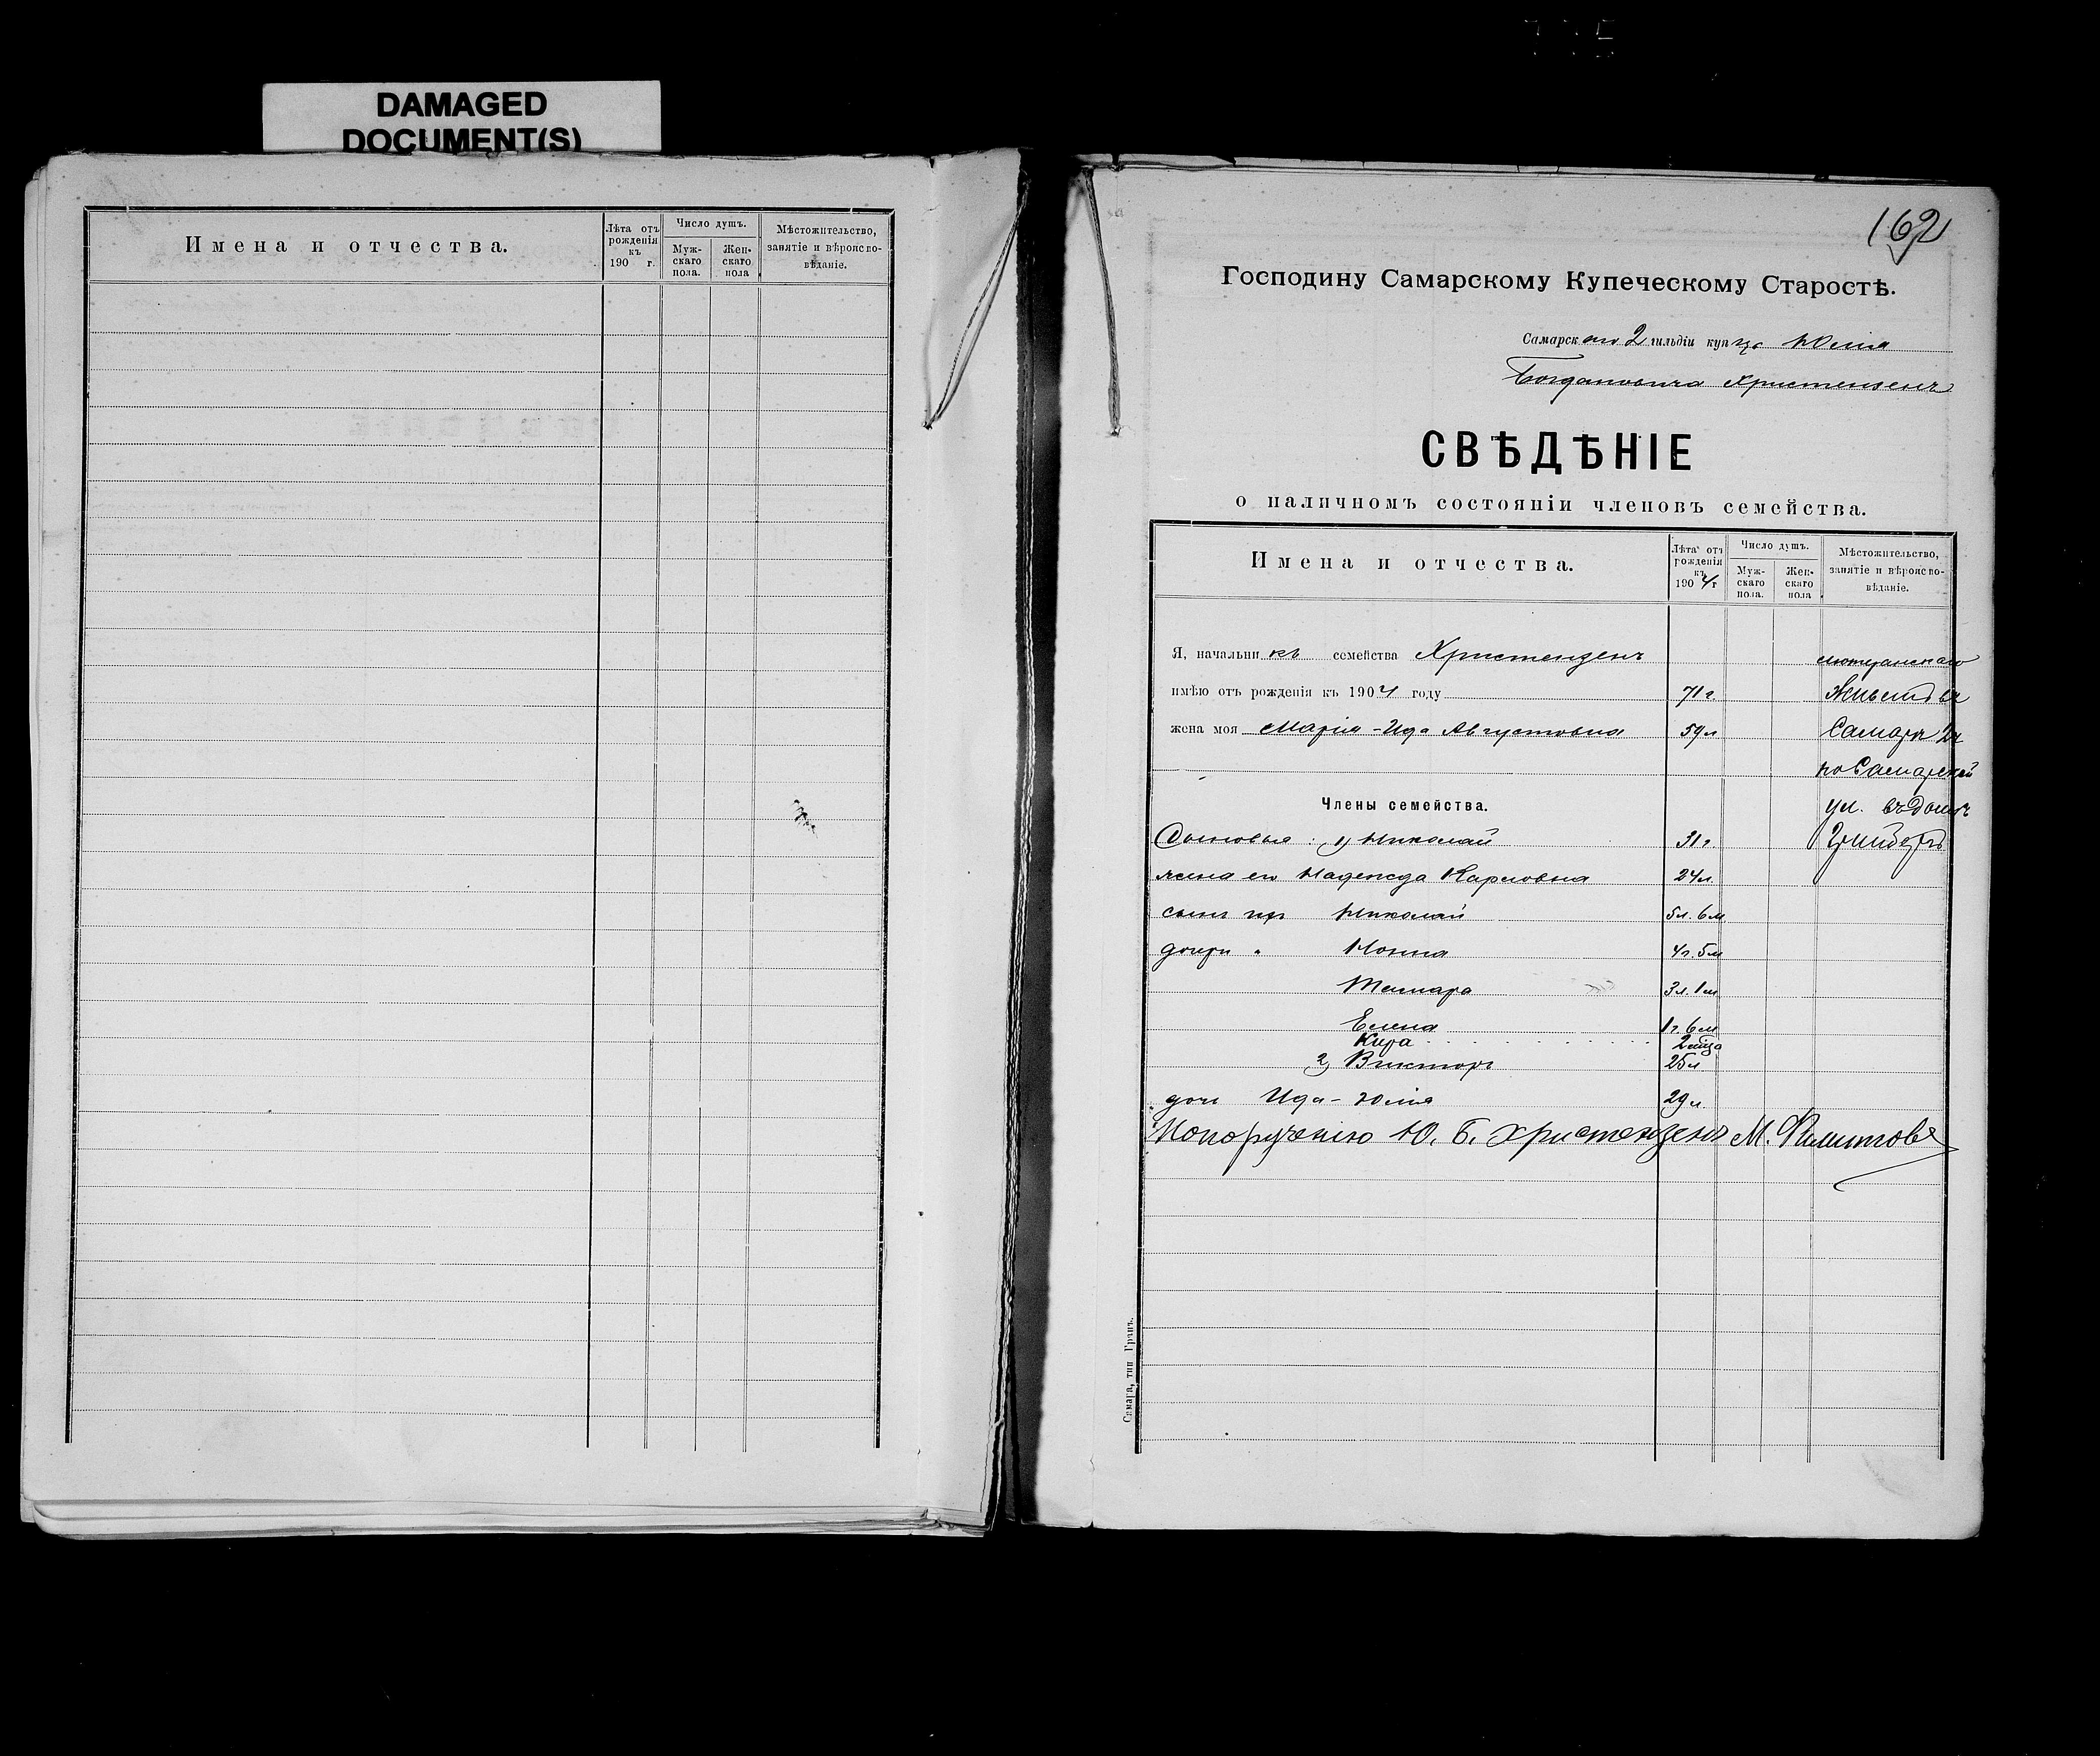 DAMAGED
DOCUMENT(S)
Имена и отчества.
Лѣта отъ рожденія къ 190 г.
Число душъ.
Мужскаго пола.
Женскаго пола
Мѣстожительство, занятіе и вѣроисповѣданіе.
162
Господину Самарскому Купеческому Старостѣ.
Самарскаго 2 гильдіи купца Юлія
Богдановича Христензенъ
СВѢДѢНІЕ
о наличномъ состояніи членовъ семейства.
Имена и отчества.
Лѣта отъ рожденія къ 1904 г.
Число душъ.
Мужскаго пола.
Женскаго пола
Мѣстожительство, занятіе и вѣроисповѣданіе.
Я, начальникъ семейства Христензенъ лютеранскаго
имѣю отъ рожденія къ 1904 году 71 г. Живетъ въ
жена моя Марія-Ида Августовна 59 л. Самарѣ 2ч
по Самарской
Члены семейства. ул. въ домѣ
Сыновья: 1) Николай 31 г.
жена его Надежда Карловна 24 л.
сынъ ихъ Николай 5 л. 6 м.
дочери " Нонна 4 г. 5 м
Тамара 3 л. 1 м
Елена 1 г. 6 м
Кира 2 мѣца
2) Викторъ 25 л
дочь Ида-Юлія 29 л.
По порученію Ю. Б. Христензенъ М. Филиповъ
Самара, тип Гранъ.